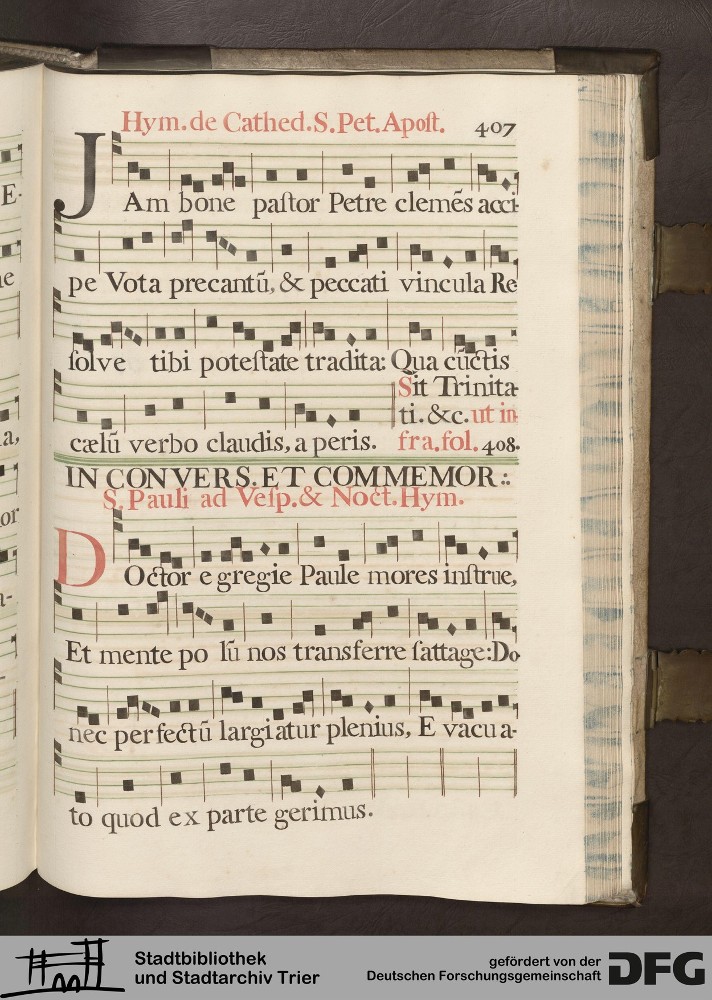 Hym. de Cathed. S. Pet. Apoſt. 407
JAm bone paſtor Petre clemẽs acci-
pe Vota precantũ, & peccati vincula Re
ſolve tibi poteſtate tradita: Qua cũctis
Sit Trinita-
ti. &c. ut in
cælũ verbo claudis, a peris. fra. fol. 408.
IN CONVERS. ET COMMEMOR :.
S. Pauli ad Veſp. & Noct. Hym.
DOctor e gregie Paule mores inſtrue,
Et mente po lũ nos transferre ſattage: Do
nec per fectũ largi atur plenius, E vacu a-
to quod ex parte gerimus.
E-
a,
or
a-
Stadtbibliothek
und Stadtarchiv Trier
gefördert von der
Deutschen Forschungsgemeinschaft
DFG